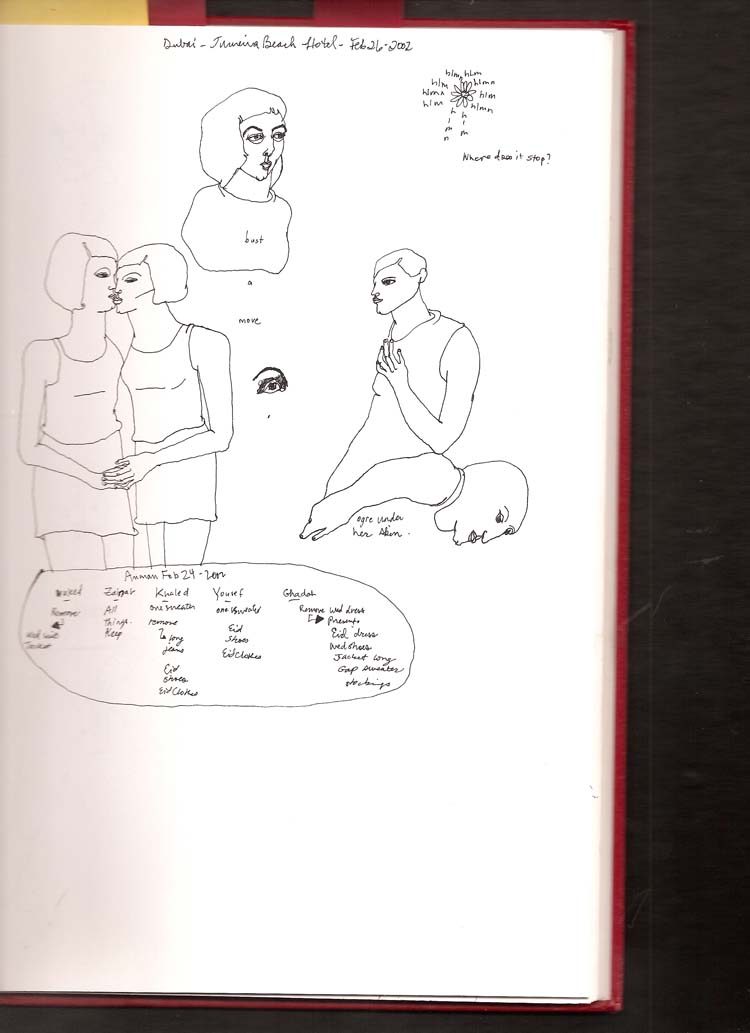 Dubai - Jumeira Beach Hotel - Feb 26 - 2002
hlmn hlm
hlm hlmn
hlmn hlm
hlm hlmn
h l m n
h l m
Where does it stop?
bust
a
move
ogre under
her skin.
Amman Feb 24 - 2002
Zainab Khaled Yousef Ghadah
Remove
Wed
Jacket
All
things.
Keep
one sweater
remove
2 long
jeans
Eid
shoes
Eid Clothes
one sweater
Eid
shoes
Eid Clothes
Remove Wed dress
Presents
Eid dress
Wed shoes
Jacket long
Gap sweater
stockings